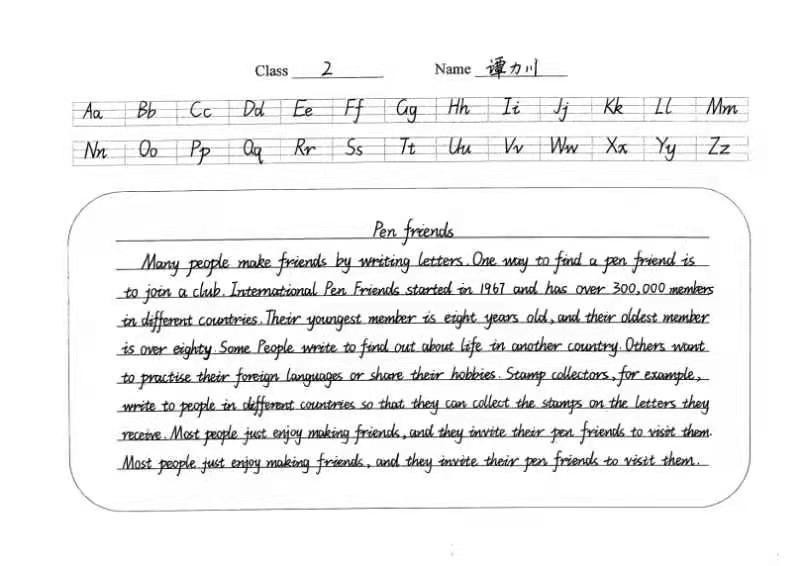 Class 2 Name 谭力川
Aa Bb Cc Dd Ee Ff Gg Hh Ii Jj Kk Ll Mm
Nn Oo Pp Qq Rr Ss Tt Uu Vv Ww Xx Yy Zz
Pen friends
Many people make friends by writing letters. One way to find a pen friend is
to join a club. International Pen Friends started in 1967 and has over 300,000 members
in different countries. Their youngest member is eight years old, and their oldest member
is over eighty. Some People write to find out about life in another country. Others want
to practise their foreign languages or share their hobbies. Stamp collectors, for example,
write to people in different countries so that they can collect the stamps on the letters they
receive. Most people just enjoy making friends, and they invite their pen friends to visit them.
Most people just enjoy making friends, and they invite their pen friends to visit them.